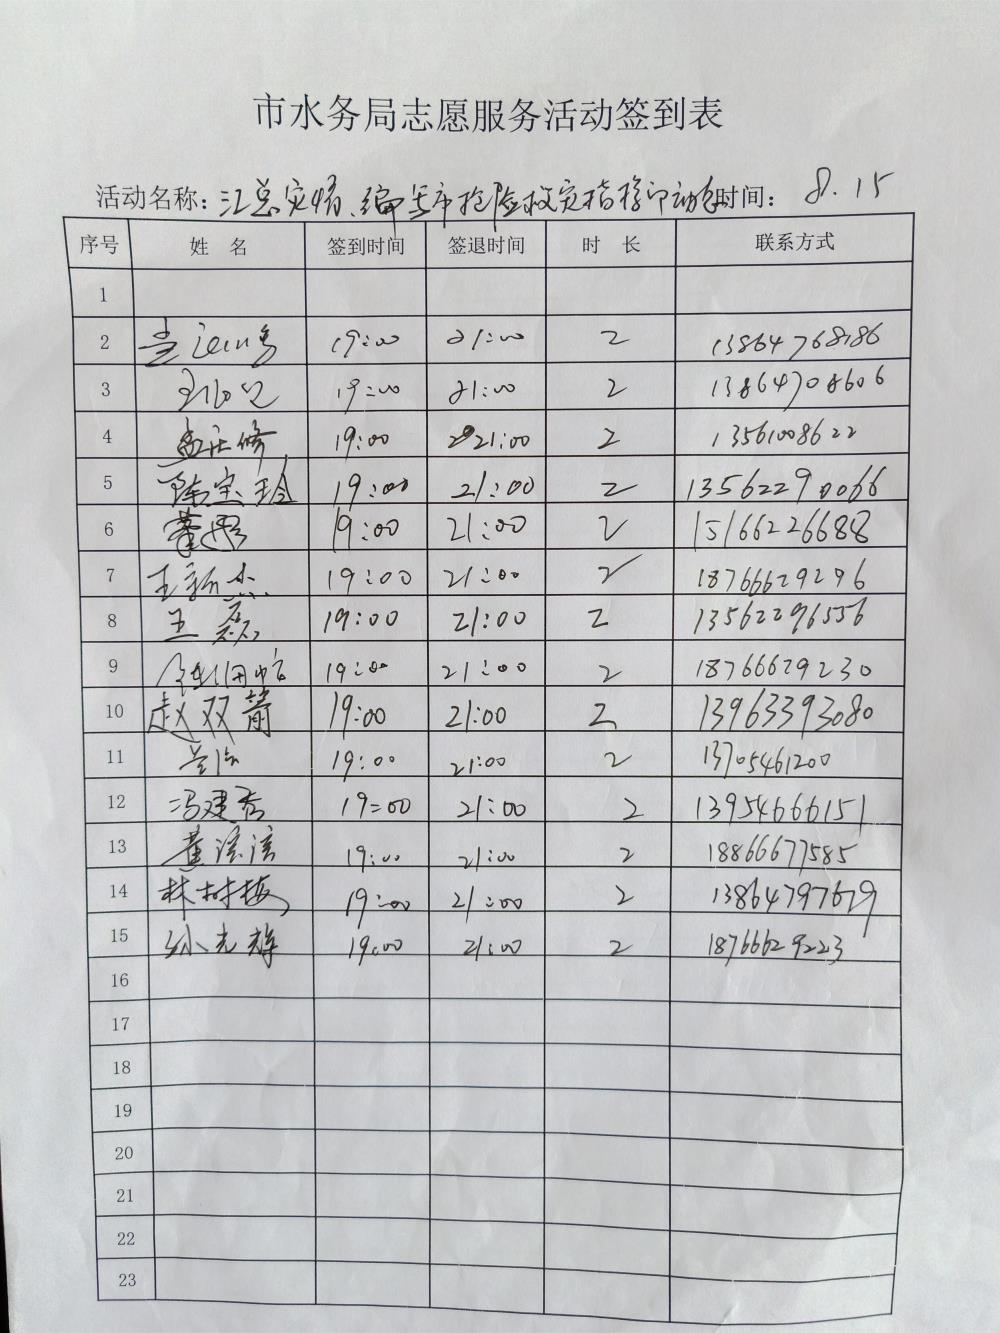 市水务局志愿服务活动签到表
活动名称：汇总灾情、编写市抢险救灾指挥部动态 时间： 8.15
序号 姓名 签到时间 签退时间 时长 联系方式
1
2 19:00 21:00 2 13864768186
3 19:00 21:00 2 13864708606
4 19:00 21:00 2 13561008622
5 陈宝玲 19:00 21:00 2 13562290066
6 董 19:00 21:00 2 15166226688
7 王 19:00 21:00 2 18766629296
8 王磊 19:00 21:00 2 13562296556
9 19:00 21:00 2 18766629230
10 赵双箭 19:00 21:00 2 13963393080
11 19:00 21:00 2 13705461200
12 冯建秀 19:00 21:00 2 13954666151
13 董 19:00 21:00 2 18866677585
14 林树梅 19:00 21:00 2 13864797679
15 孙光辉 19:00 21:00 2 18766629223
16
17
18
19
20
21
22
23